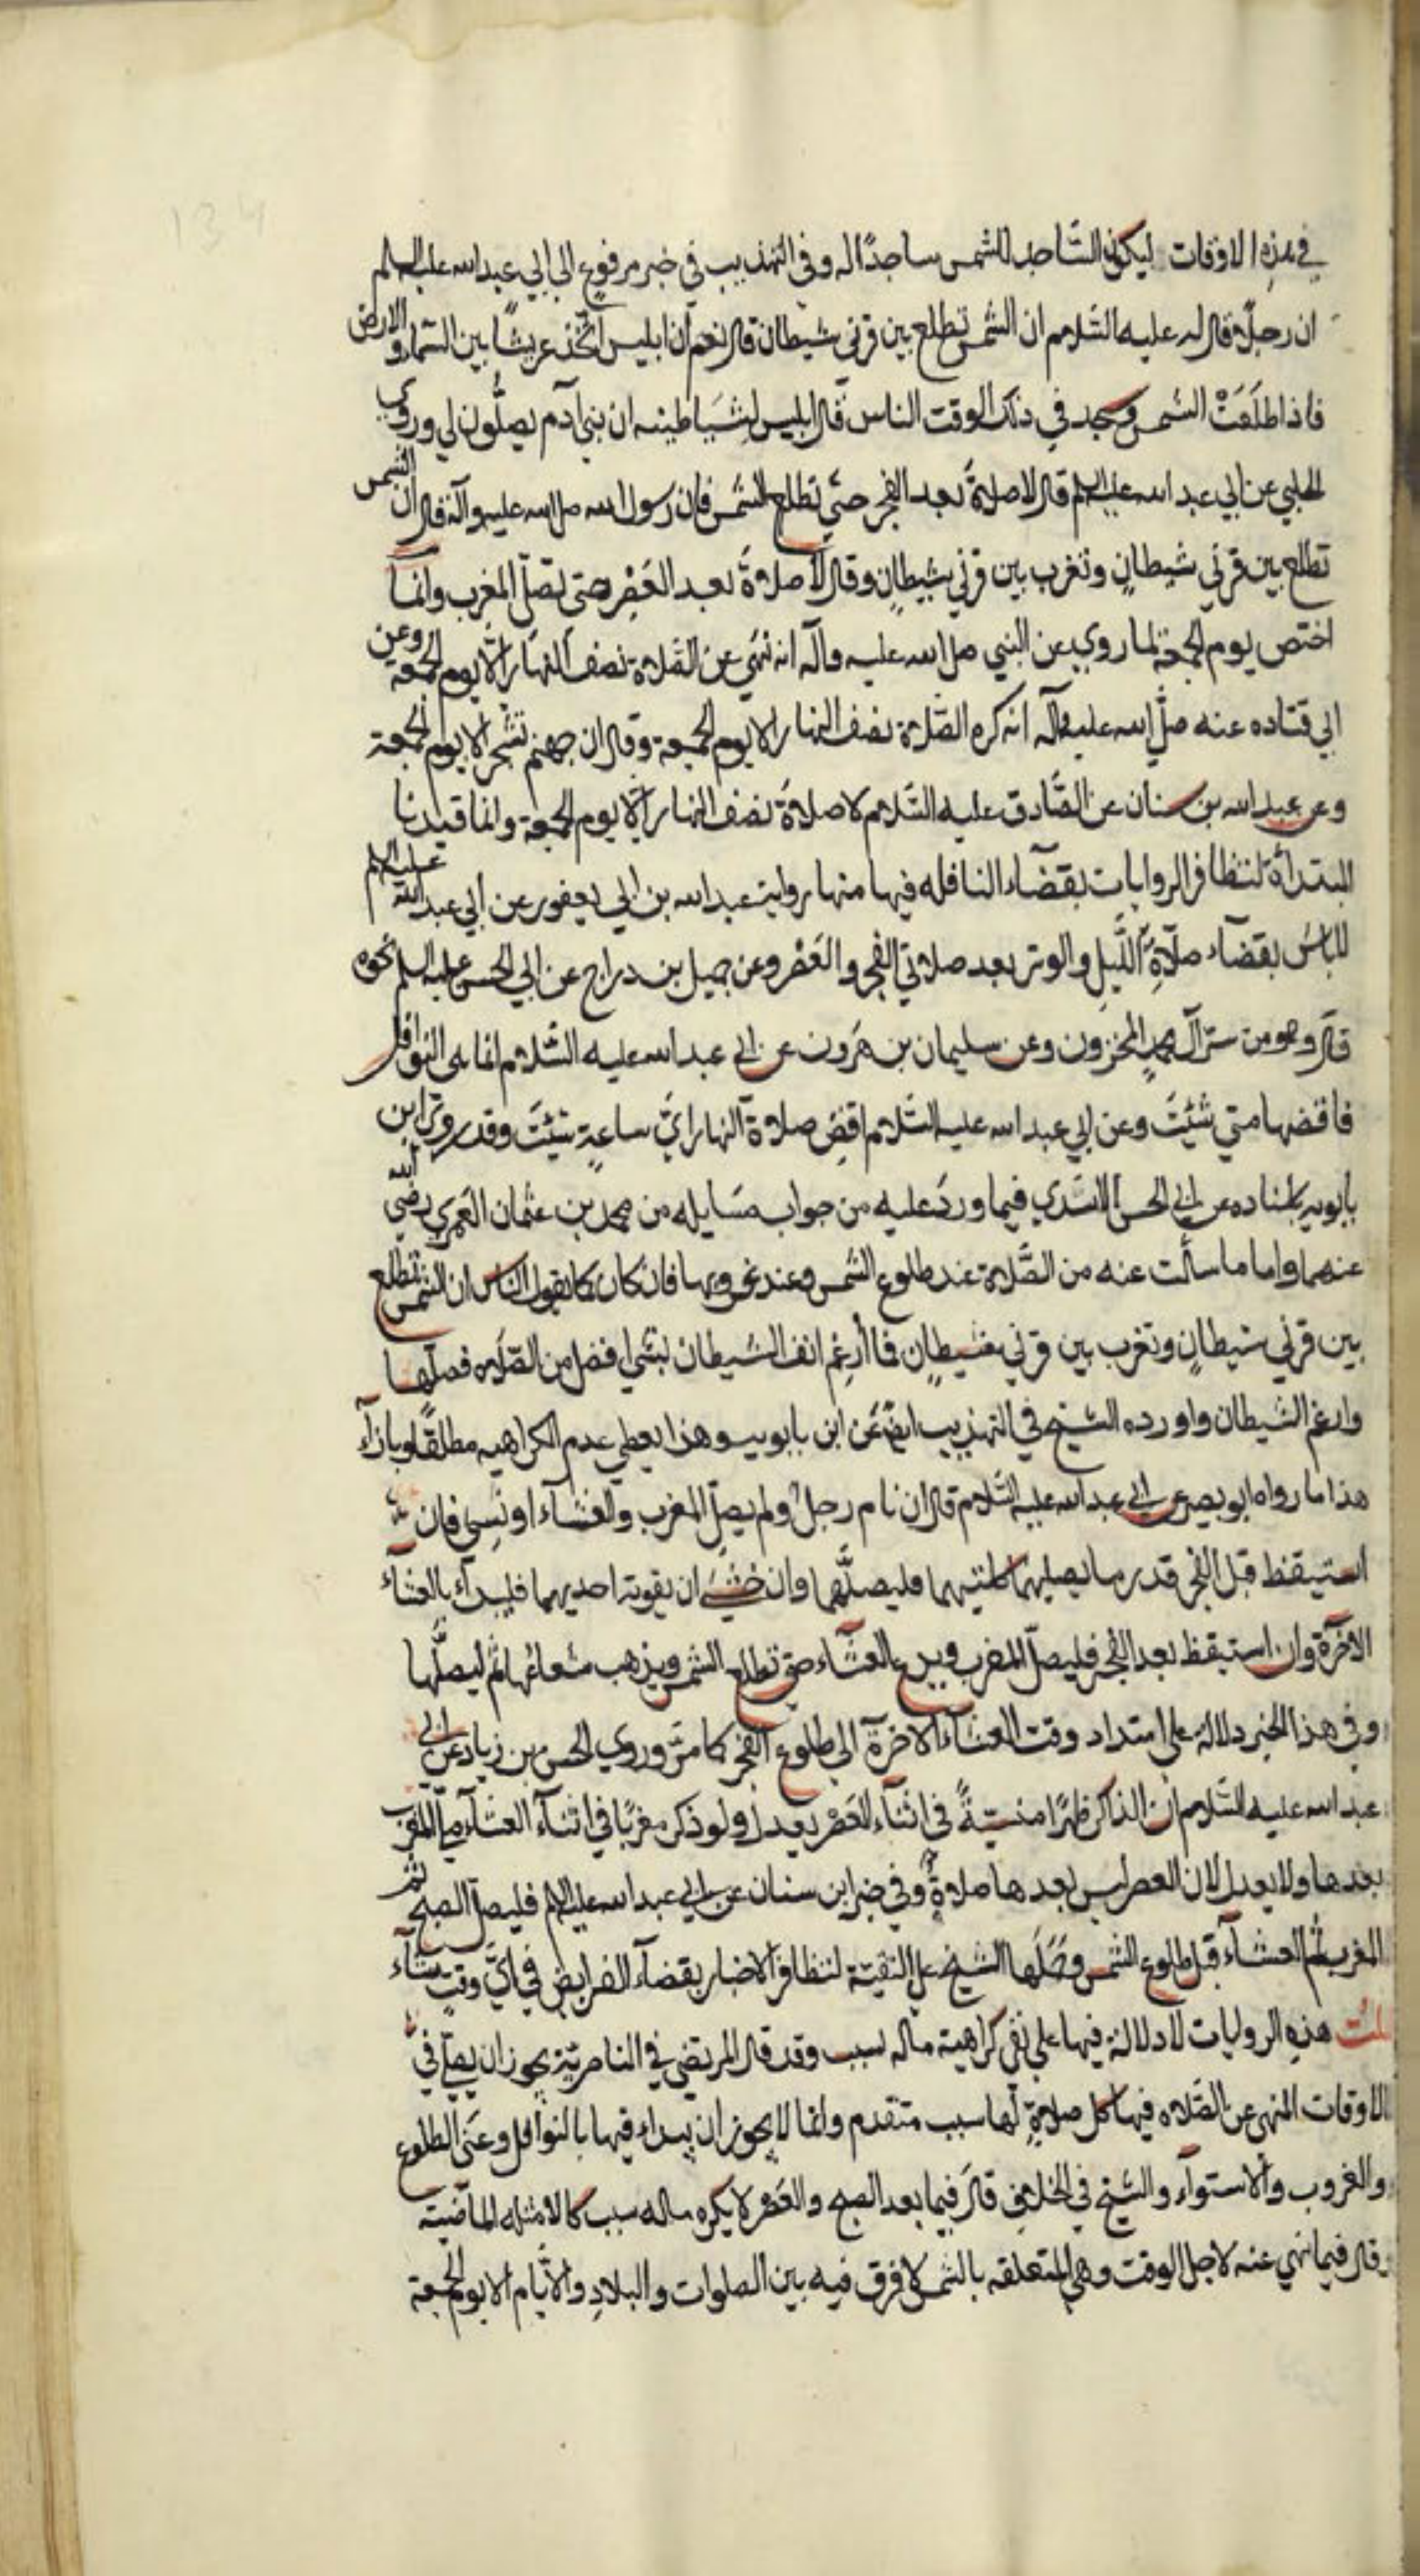 134
في هذه الاوقات ليكون الساجد للشمس ساجدًا له وفي التهذيب في خبر مرفوع الى ابي عبد الله عليه السلم
ان رجلًا قال له عليه السَّلام ان الشمس تطلع بين قرني شيطان قال نعم ان ابليس اتخذ عريشًا بين السَّماء والارض
فاذا طلَعَتْ الشمس وسجد في ذلك الوقت الناس قال ابليس لشَيَاطينه ان بني آدم يصلُّون لي وروى
الحلبي عن ابي عبد الله عليه السلم قال لا صلاةَ بعد الفجر حتي تطلع الشمس فان رسول الله صلى الله عليه وآله قال ان الشمس
تطلع بين قرني شيطانٍ وتغرب بين قرني شيطانٍ وقال لا صلاةَ بعد العَصْر حتى تصلّ المغرب وانما
اختص يوم الجمعة لما روي عن النبي صلى الله عليه وآله انه نهَي عن الصَّلاة نصف النهار الَّا يوم الجمعة وعن
ابي قتاده عنه صلَّى الله عليه وآله انه كره الصَّلاة نصف النهار الا يوم الجمعة وقال ان جهنم تسْجر الا يوم الجمعة
وعن عبد الله بن سنان عن الصَّادق عليه السَّلام لا صلاةَ نصف النهار الَّا يوم الجمعة وانما قيدنا
المبتدأة لتظافر الروايات بقضَآء النافله فيها منها رواية عبد الله بن ابي يعفور عن أبي عبد الله عليه السلم
لا باسَ بقضَآء صلاةِ اللَّيل والوتر بعد صلاتي الفجر والعَصْر وعن جميل بن دراج عن ابي الحسن عليه السلم نحوه
قال وهو من سرّ آل محمدٍ المخزون وعن سليمان بن هَرون عن ابي عبد الله عليه السَّلام انما هي النوافل
فاقضها متي شئتَ وعن ابي عبد الله عليه السَّلام اقضِ صلاة النهار ايَّ ساعةٍ شئتَ وقد روى ابن
بابويه باسناده عن ابي الحسن الاسَدي فيما ورَد عليه من جواب مسَايله من محمد بن عثمان العَمري رضي الله
عنهما واما ما سألت عنه من الصَّلاة عند طلوع الشمس وعند غروبها فان كان كما يقول الناس ان الشمس تطلع
بين قرني شيطانٍ وتغرب بين قرني شيطانٍ فما أرغِم انف الشيطان بشي افضل من الصَّلاه فصلّها
وارغم الشيطان واورده الشيخ في التهذيب ايضً عَن ابن بابويه وهذا يعطي عدم الكراهيه مطلقًا وبازآء
هذا ما رواه ابو بصير عن ابي عبد الله عليه السَّلام قال ان نام رجلٌ ولم يصلّ المغرب والعشآء او نَسِي فان
استيقظ قبل الفجر قدر ما يصليهما كلتيهما فليصلَّهما وان خشيَ ان يفوته احديهما فليبدأ بالعشآء
الاخرة وان استيقظ بعد الفجر فليصلّ المغرب ويدع العشآء حتى تطلع الشمس ويذهب شعاعُها ثم ليصلّها
وفي هذا الخبر دلالة على امتداد وقت العشَآء الاخرة الى طلوع الفجر كما مرَّ وروي الحسن بن زياد عن ابي
عبد الله عليه السَّلام ان الذاكر ظهرًا منسيّةً في اثنآء العَصْر يعدل ولو ذكر مغربًا في اثنآء العشآء صلّى المغرب
بعدها ولا يعدل لان العصر ليس بعدها صلاةٌ وفي خبر ابن سنان عن ابي عبد الله عليه السلم فليصلّ الصبح ثم
المغرب ثم العشآء قبل طلوع الشمس وحَمَلها الشيخ على التقيّة لتظافر الاخبار بقضآء الفرايض في ايّ وقتٍ شآء
قلت هذه الروايات لا دلالة فيها على نفي كراهية ماله سبب وقد قال المرتضى في الناصريّة يجوز ان يصلّى في
الاوقات المنهي عن الصَّلاه فيها كل صلاةٍ لها سبب متقدم وانما لا يجوز ان يبداء فيها بالنوافل وعَنَى الطلوع
والغروب والاستوآء والشيخ في الخلاف قال فيما بعد الصبح والعَصْر لا يكره ماله سبب كالامثله الماضية
وقال فيما نهي عنه لاجل الوقت وهي المتعلقه بالشمس لا فرق فيه بين الصلوات والبلادِ والأيّام الا يوم الجمعة